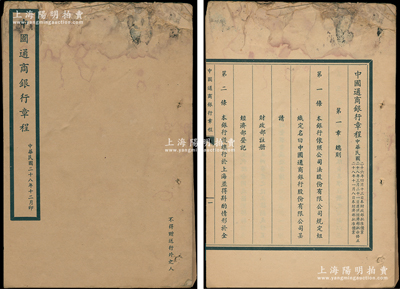 上海陽明拍賣
國通商銀行章程
中華民國二十八年十二月印
不得贈送行外之人
上海陽明拍賣
中國通商銀行章程
第一章 總則
第一條 本銀行依照公司法股份有限公司規定組
織定名曰中國通商銀行股份有限公司呈
請
財政部註冊
經濟部登記
第二條 本銀行設總行於上海並得斟酌情形於全
中國通商銀行章程